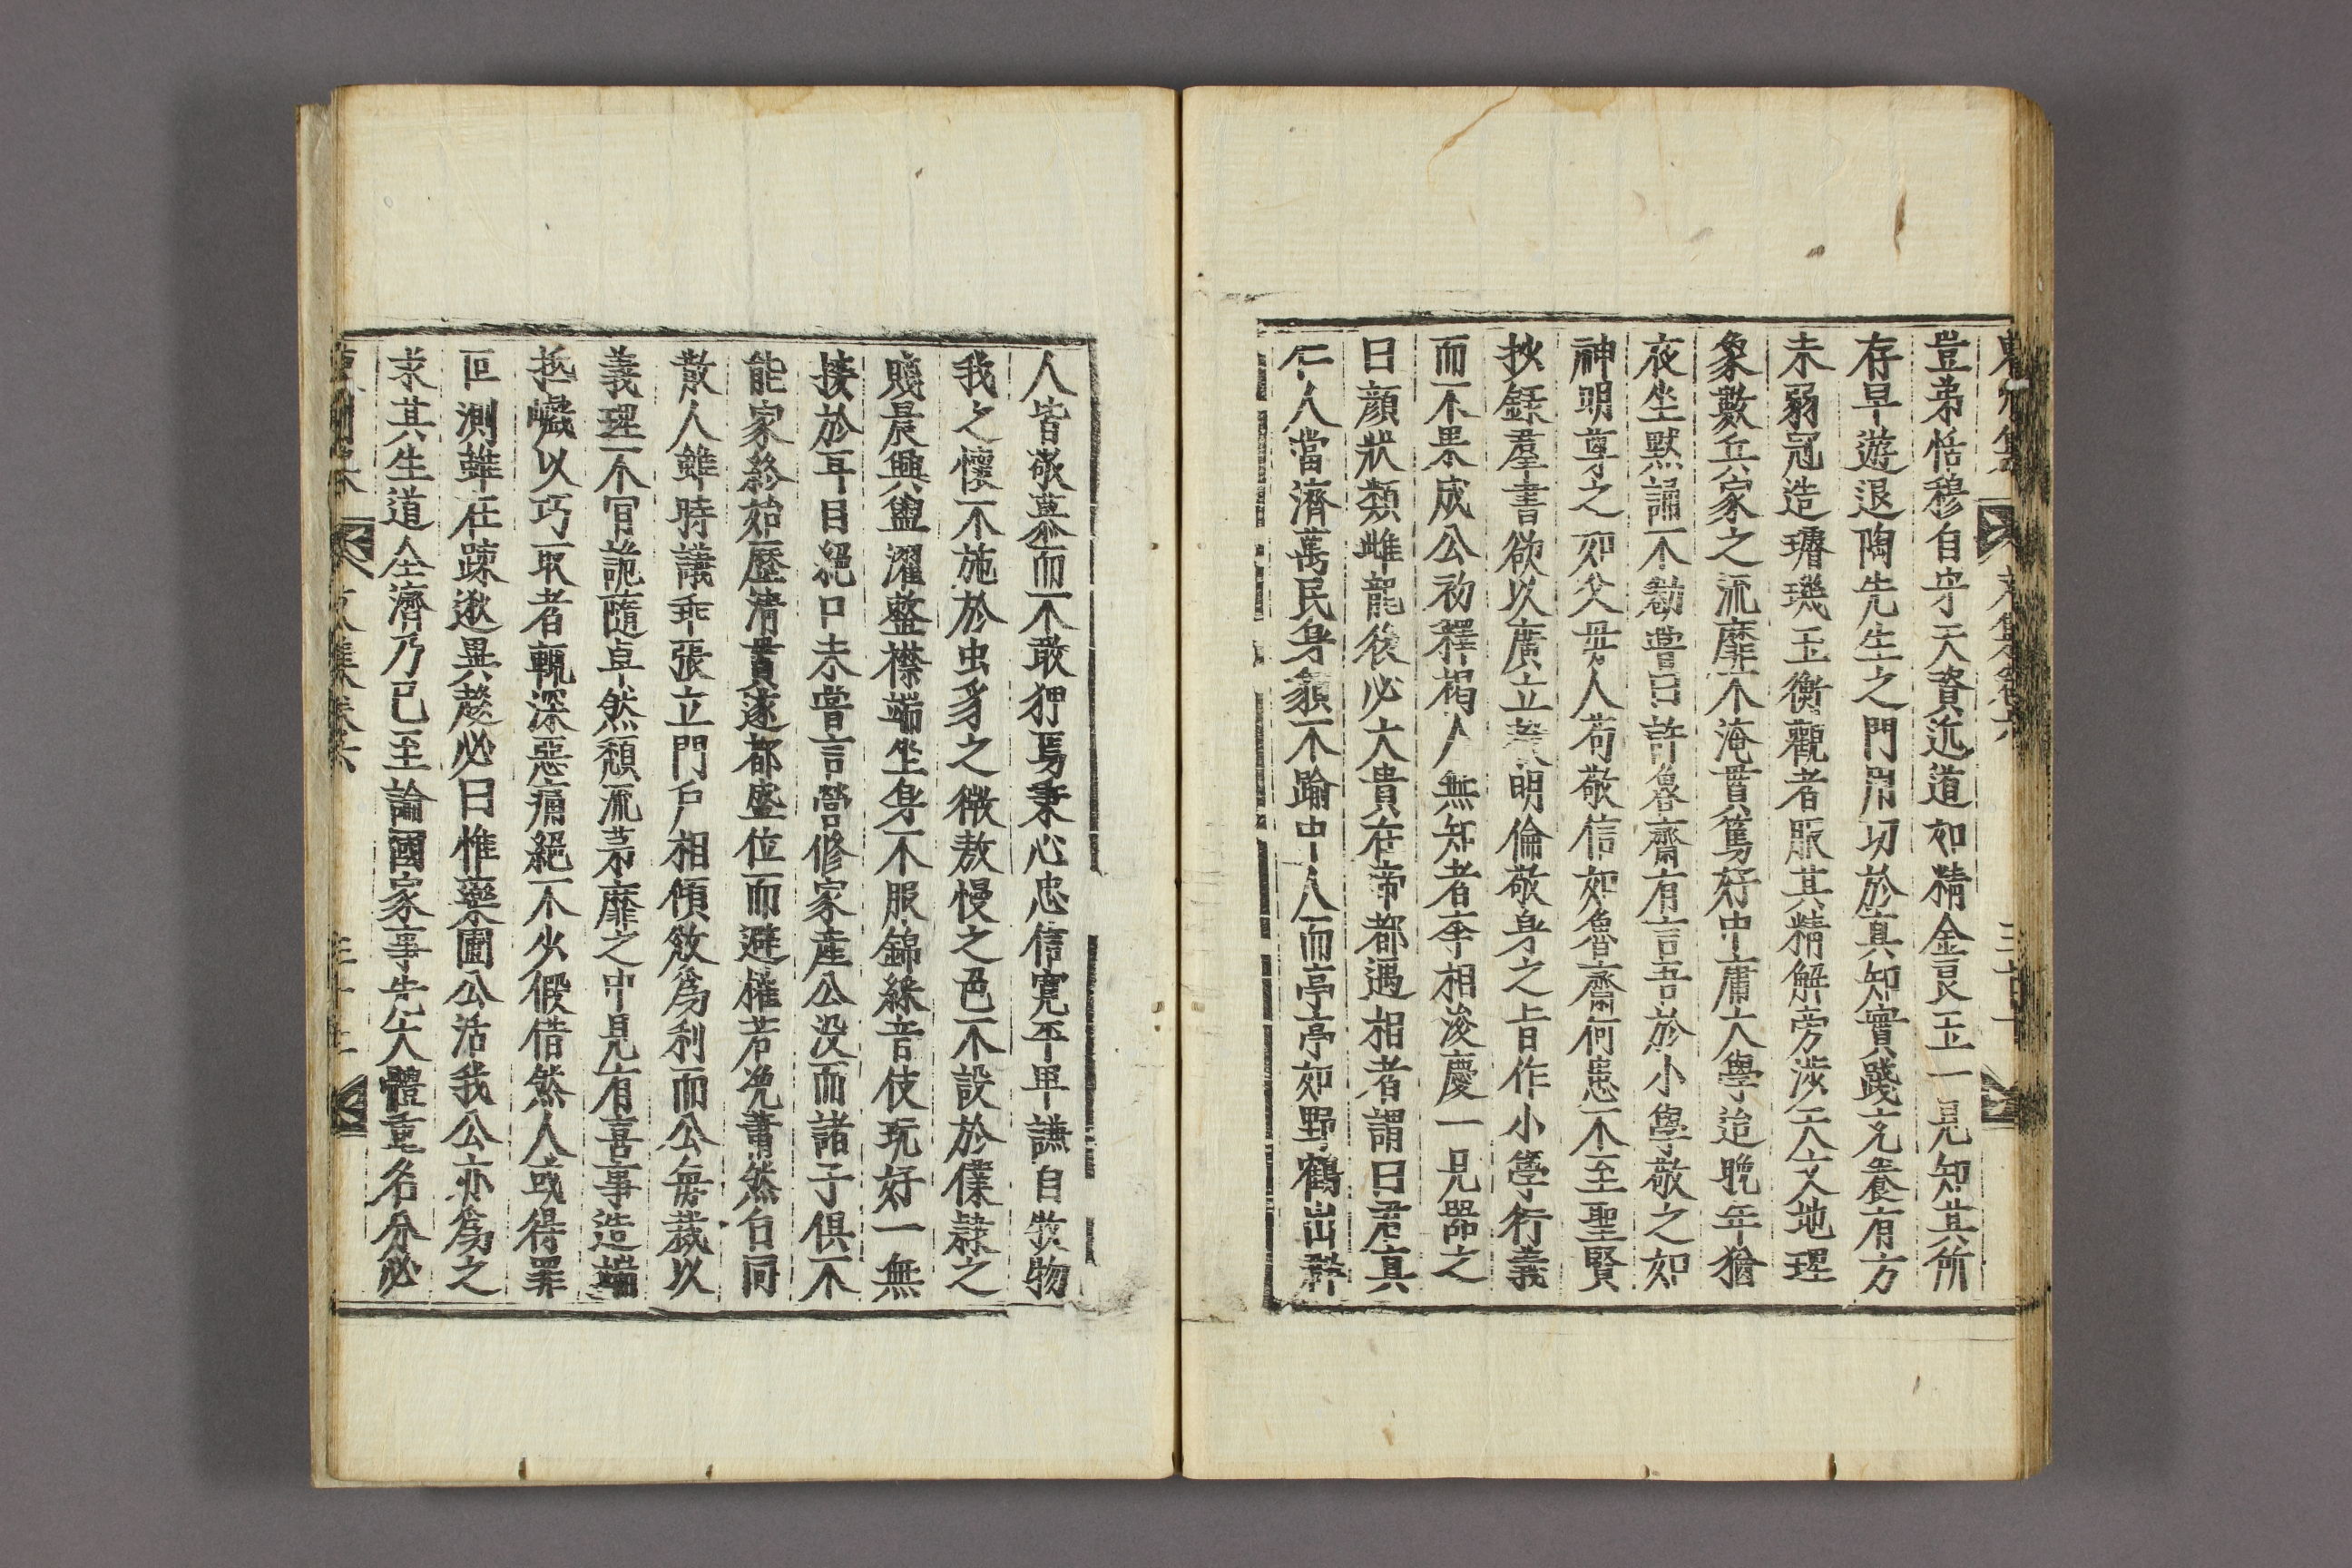 豈弟恬穆自守天資近道如精金良玉一見知其所
存早遊退陶先生之門用切於真知實踐充養有方
未弱冠造璿璣玉衡觀者服其精解旁涉天文地理
象數兵家之流靡不淹貫篤好中庸大學迨晩年猶
夜坐默誦不勌嘗曰許魯齋有言吾於小學敬之如
神明尊之如父母人苟敬信如魯齋何患不至聖賢
抄錄羣書欲以廣立敎明倫敬身之旨作小學衍義
而不果成公初釋褐人無知者李相浚慶一見器之
曰顔狀類雌龍後必大貴在帝都遇相者謂曰君真
仁人當濟萬民身貌不踰中人而亭亭如野鶴出群
人皆敬慕而不敢狎焉秉心忠信寬平卑謙自牧物
我之懷不施於虫豸之微敖慢之色不設於僕隷之
賤晨興盥濯整襟端坐身不服錦綵音伎玩好一無
接於耳目絕口未嘗言營修家産公沒而諸子俱不
能家終始歷淸貫遂都盛位而避權若浼蕭然台同
散人雖時議乖張立門戶相傾敓爲利而公每裁以
義理不官詭隨卓然頹流茅靡之中見有喜事造端
抵巇以巧取者輒深惡痛絕不少假借然人或得罪
叵測雖在踈逖異趍必曰惟藥圃公活我公亦爲之
求其生道全濟乃已至論國家事先大體重名分必